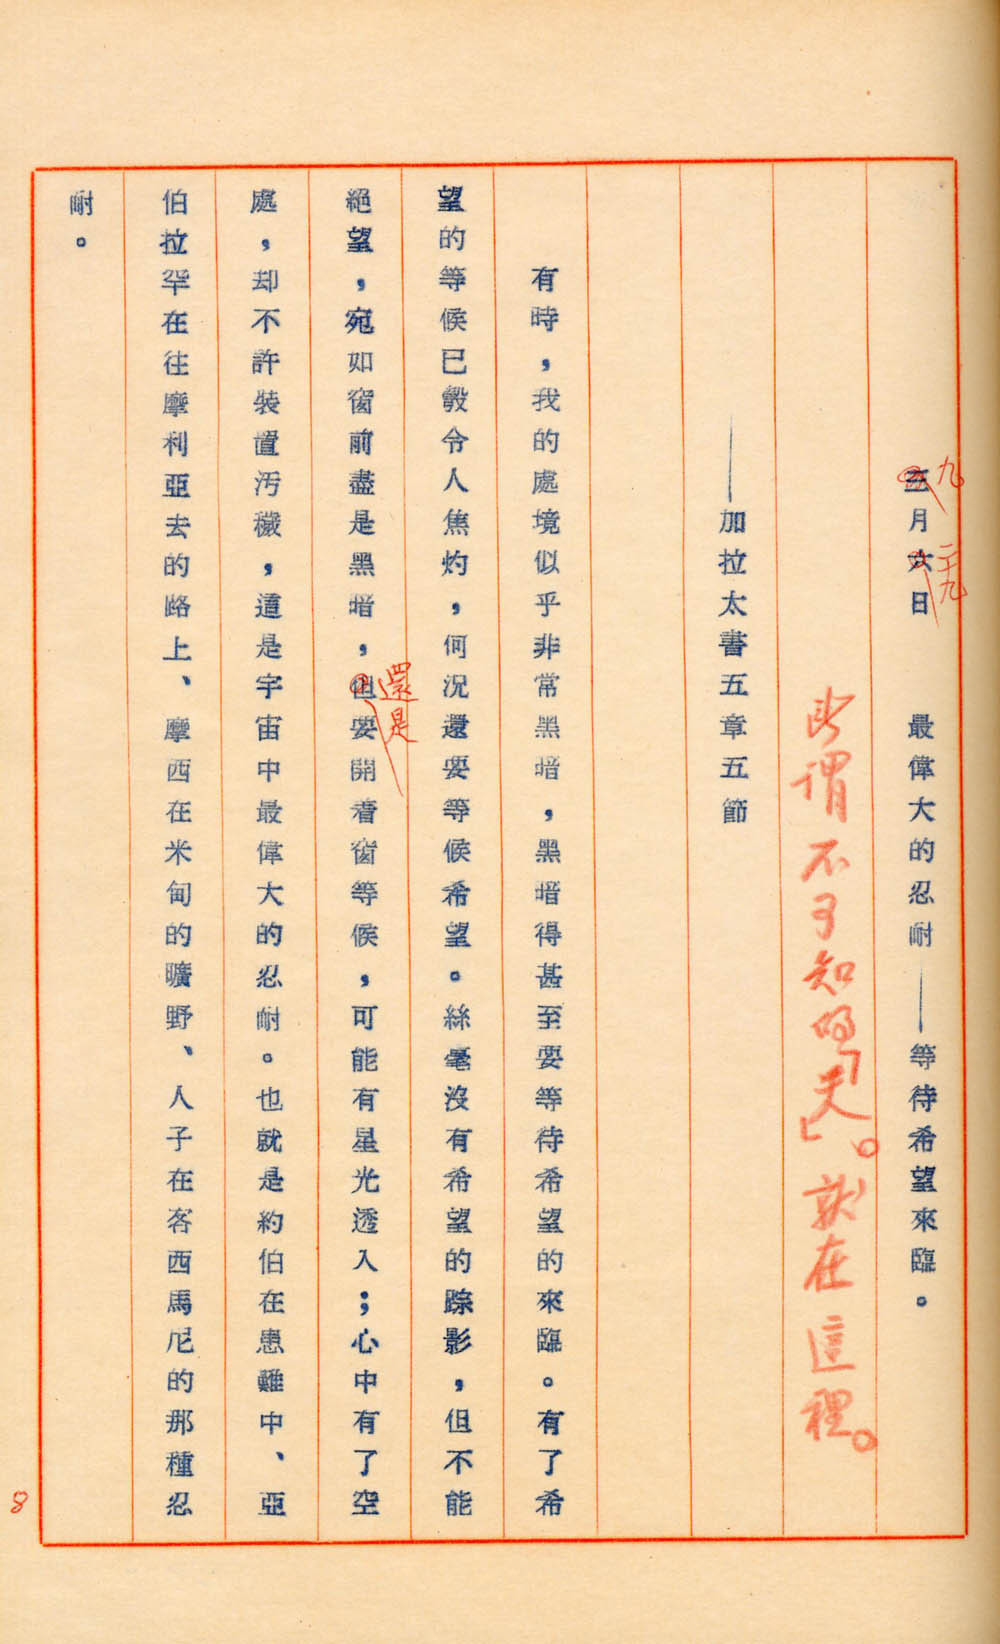 三月六日　最偉大的忍耐——等待希望來臨。
九　二十九
所謂不可知的「天」。就在這裡。
——加拉太書五章五節
有時，我的處境似乎非常黑暗，黑暗得甚至要等待希望的來臨。有了希
望的等候已彀令人焦灼，何況還要等候希望。絲毫沒有希望的踪影，但不能
絕望，宛如窗前盡是黑暗，但要開着窗等候，可能有星光透入；心中有了空
還是
處，却不許裝置汚穢，這是宇宙中最偉大的忍耐。也就是約伯在患難中、亞
伯拉罕在往摩利亞去的路上、摩西在米甸的曠野、人子在客西馬尼的那種忍
耐。
8